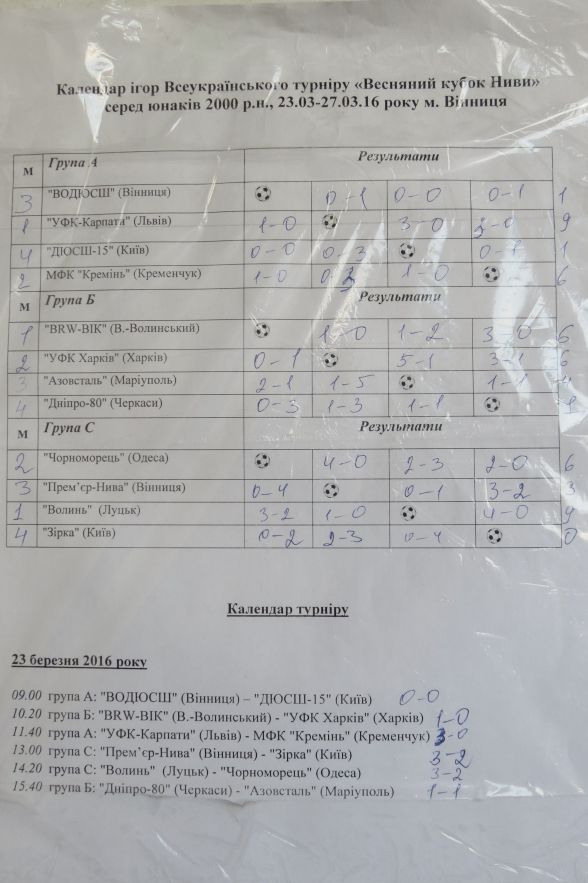 Календар ігор Всеукраїнського турніру «Весняний кубок Ниви»
серед юнаків 2000 р.н., 23.03-27.03.16 року м. Вінниця
м Група А Результати
3 "ВОДЮСШ" (Вінниця) 0-1 0-0 0-1 1
1 "УФК-Карпати" (Львів) 1-0 3-0 3-0 9
4 "ДЮСШ-15" (Київ) 0-0 0-3 0-1 1
2 МФК "Кремінь" (Кременчук) 1-0 0-3 1-0 6
м Група Б Результати
1 "BRW-ВІК" (В.-Волинський) 1-0 1-2 3-0 6
2 "УФК Харків" (Харків) 0-1 5-1 3-1 6
3 "Азовсталь" (Маріуполь) 2-1 1-5 1-1 4
4 "Дніпро-80" (Черкаси) 0-3 1-3 1-1 1
м Група С Результати
2 "Чорноморець" (Одеса) 4-0 2-3 2-0 6
3 "Прем’єр-Нива" (Вінниця) 0-4 0-1 3-2 3
1 "Волинь" (Луцьк) 3-2 1-0 4-0 9
4 "Зірка" (Київ) 0-2 2-3 0-4 0
Календар турніру
23 березня 2016 року
09.00 група А: "ВОДЮСШ" (Вінниця) – "ДЮСШ-15" (Київ) 0-0
10.20 група Б: "BRW-ВІК" (В.-Волинський) - "УФК Харків" (Харків) 1-0
11.40 група А: "УФК-Карпати" (Львів) - МФК "Кремінь" (Кременчук) 3-0
13.00 група С: "Прем’єр-Нива" (Вінниця) - "Зірка" (Київ) 3-2
14.20 група С: "Волинь" (Луцьк) - "Чорноморець" (Одеса) 3-2
15.40 група Б: "Дніпро-80" (Черкаси) - "Азовсталь" (Маріуполь) 1-1